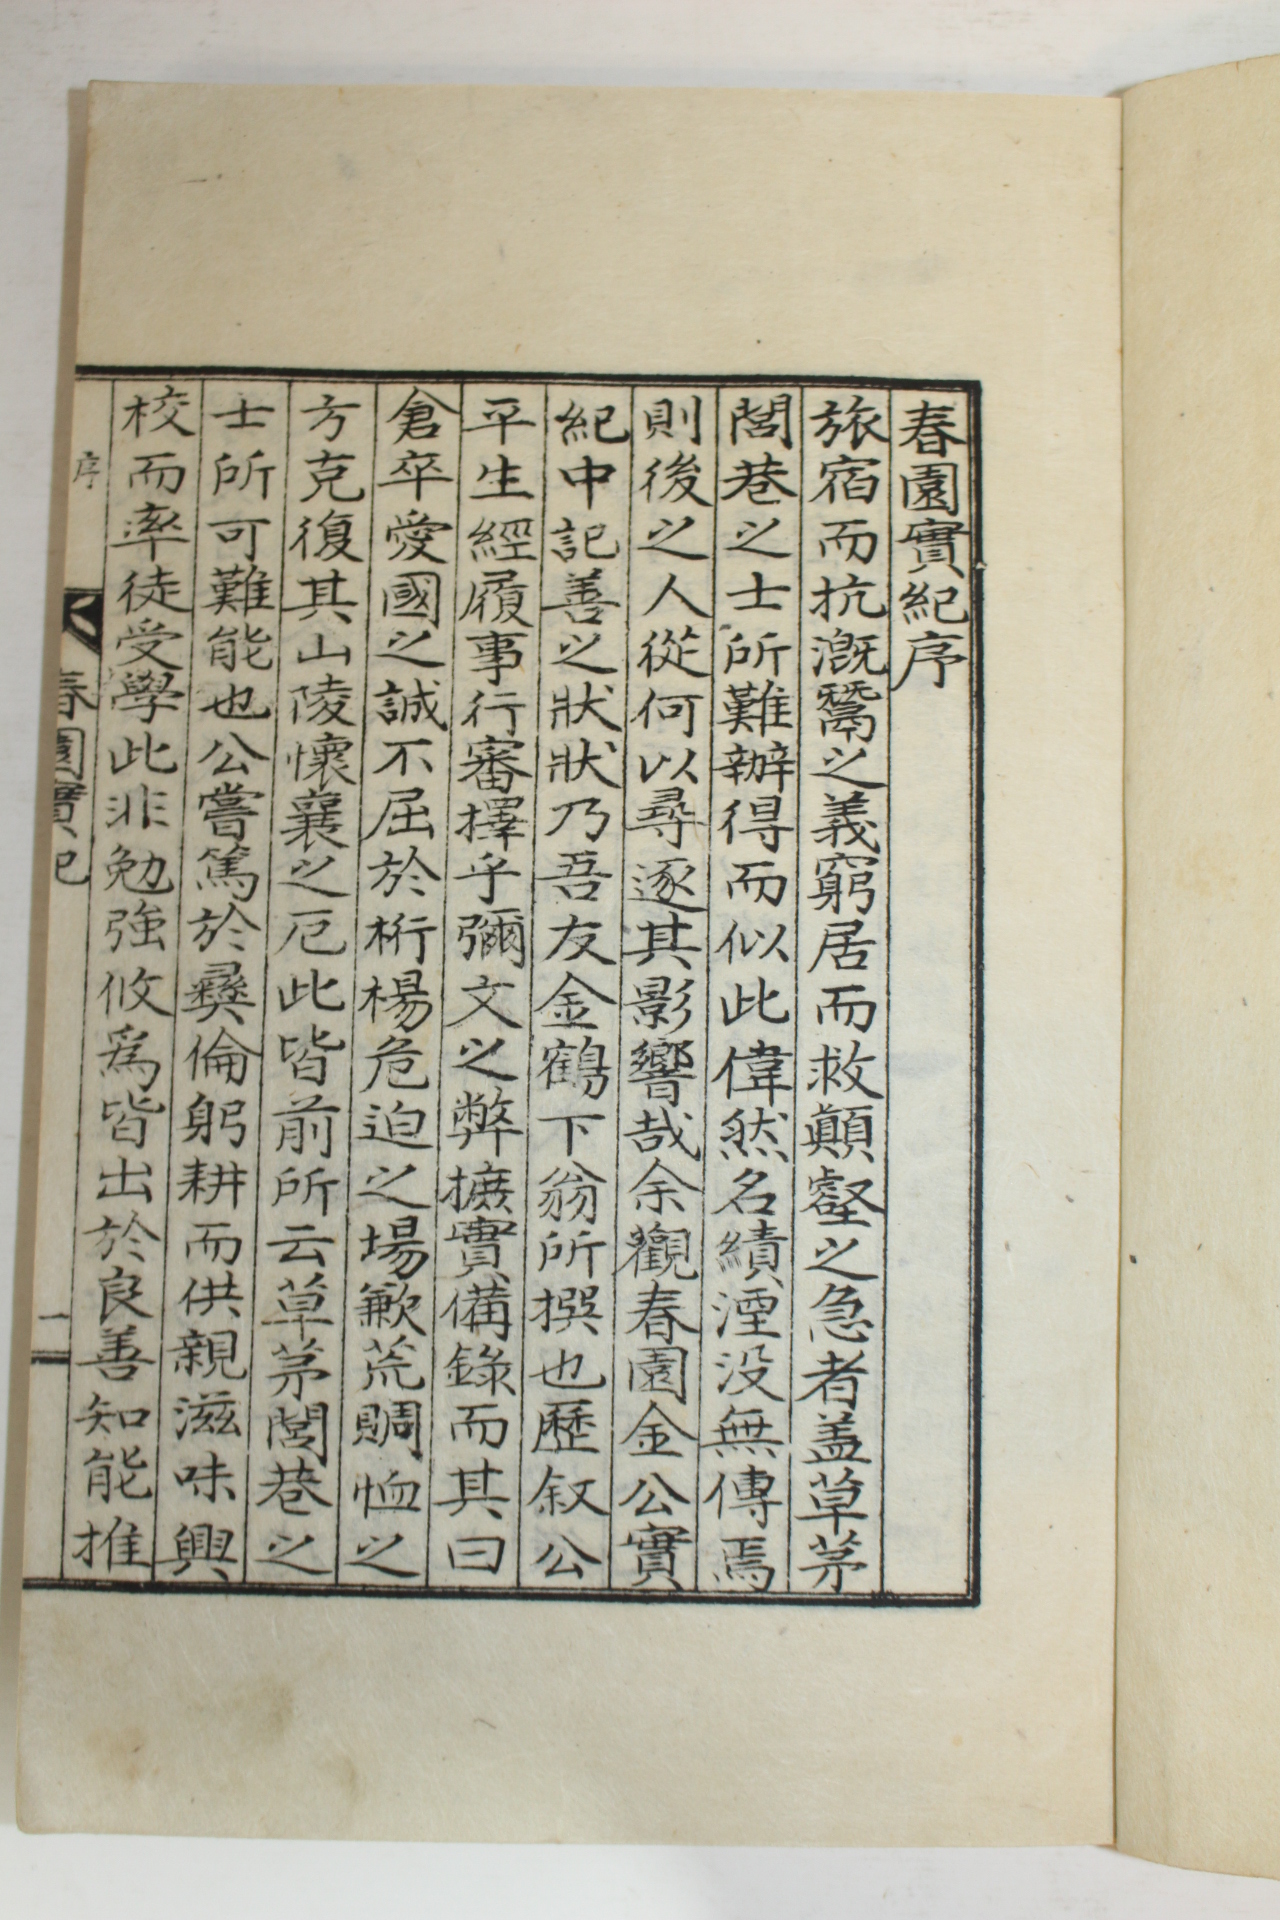 春園實紀序
旅宿而抗漑鬵之義窮居而救顚壑之急者盖草茅
閭巷之士所難辦得而似此偉然名績湮没無傳焉
則後之人從何以尋逐其影響哉余觀春園金公實
紀中記善之狀狀乃吾友金鶴下翁所撰也歷叙公
平生經履事行審擇乎彌文之弊摭實備錄而其曰
倉卒愛國之誠不屈於桁楊危迫之場歉荒賙恤之
方克復其山陵懷襄之厄此皆前所云草茅閭巷之
士所可難能也公嘗篤於彛倫躬耕而供親滋味興
校而率徒受學此非勉強攸爲皆出於良善知能推
序
春園實紀
一